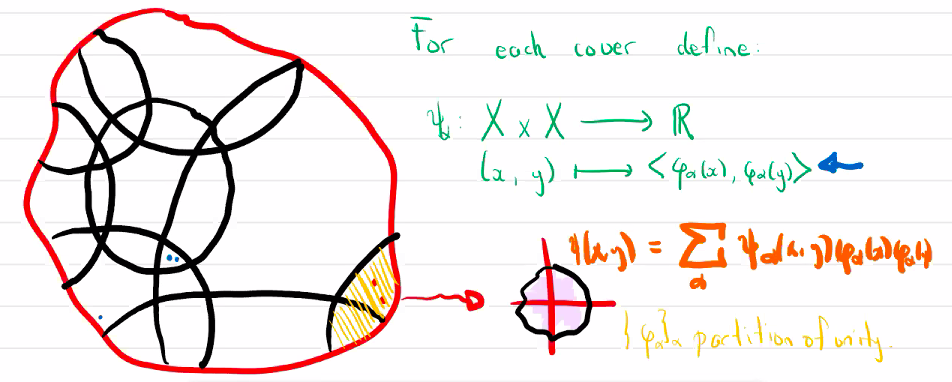 For each cover define:
ψ_α: X × X ⟶ ℝ
(x, y) ⟼ <φ_α(x), φ_α(y)>
ψ(x, y) = ∑_α ψ_α(x, y) φ_α(x) φ_α(y)
{φ_α}_α partition of unity.